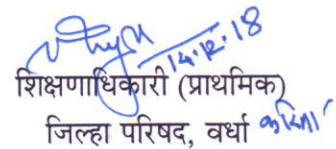 14.12.18
शिक्षणाधिकारी (प्राथमिक)
जिल्हा परिषद, वर्धा करिता